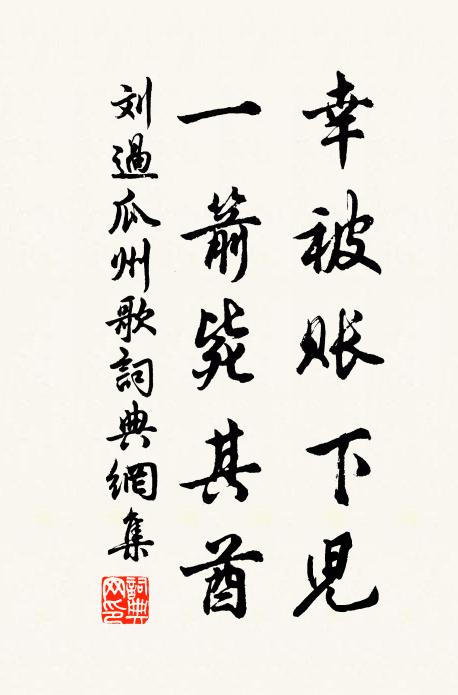 幸被账下児
一箭毙其酋
刘過瓜州歌詞典網集
詞典网印